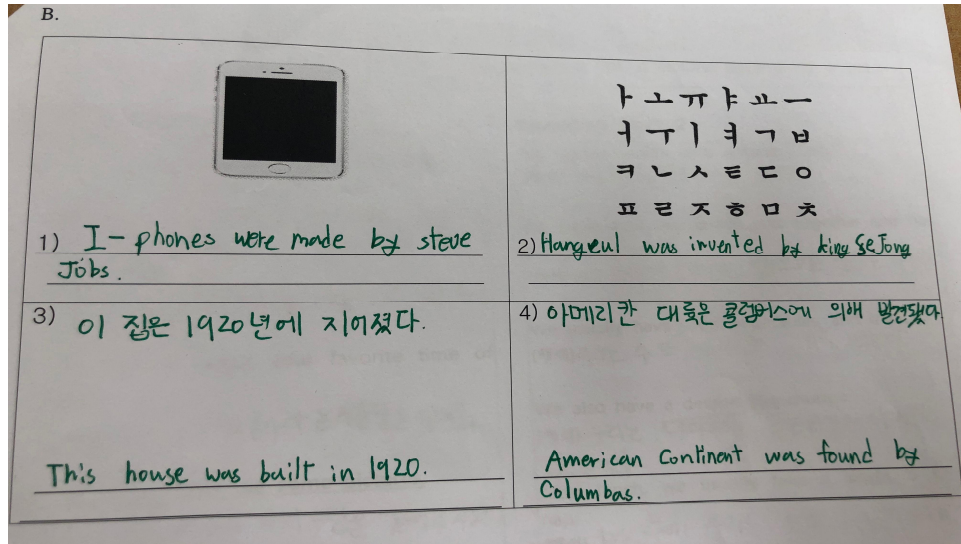 B.
ㅏ ㅗ ㅠ ㅑ ㅛ ㅡ
ㅓ ㅜ ㅣ ㅕ ㄱ ㅂ
ㅋ ㄴ ㅅ ㅌ ㄷ ㅇ
ㅍ ㄹ ㅈ ㅎ ㅁ ㅊ
1) I-phones were made by steve
Jobs.
2) Hangeul was invented by king SeJong
3) 이 집은 1920년에 지어졌다.
This house was built in 1920.
4) 아메리칸 대륙은 콜럼버스에 의해 발견됐다
American Continent was found by
Columbas.